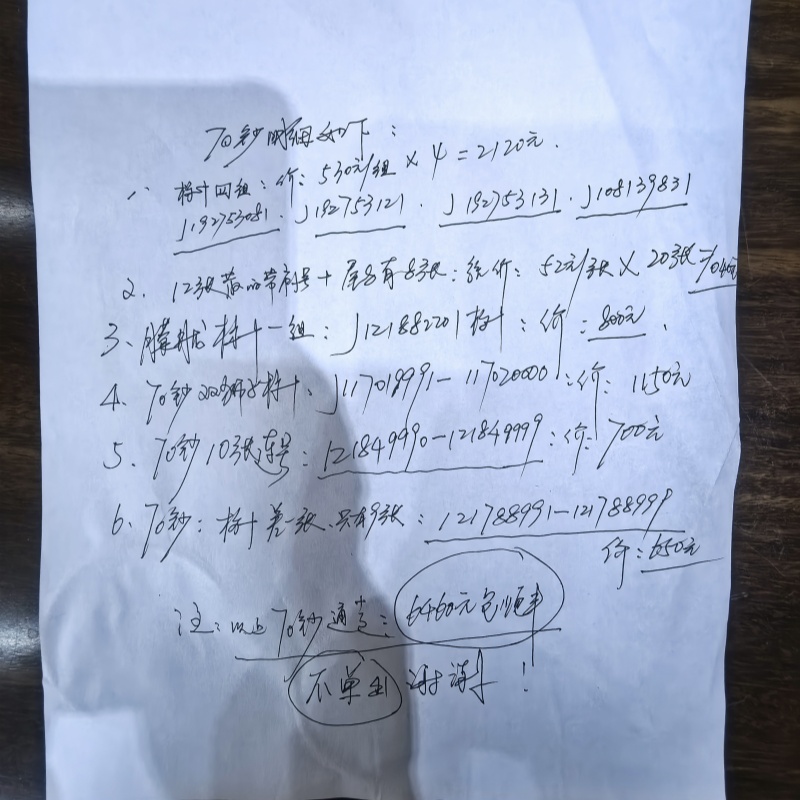 70钞明细如下：
一、标十四组：价：530元/组×4=2120元.
J192753081. J192753121. J192753131. J108139831
2、12张散的带利号+尾8有8张：统价：52元/张×20张=1040元
3、标十一组：J12188201标十：价：800元.
4、70钞标十：J117019991-117020000：价：1150元
5、70钞10张连号：121849990-121849999：价：700元
6、70钞：标十差一张、只有9张：121788991-121788999
价：650元
注：以上70钞通走：6460元包顺丰
不单出谢谢！